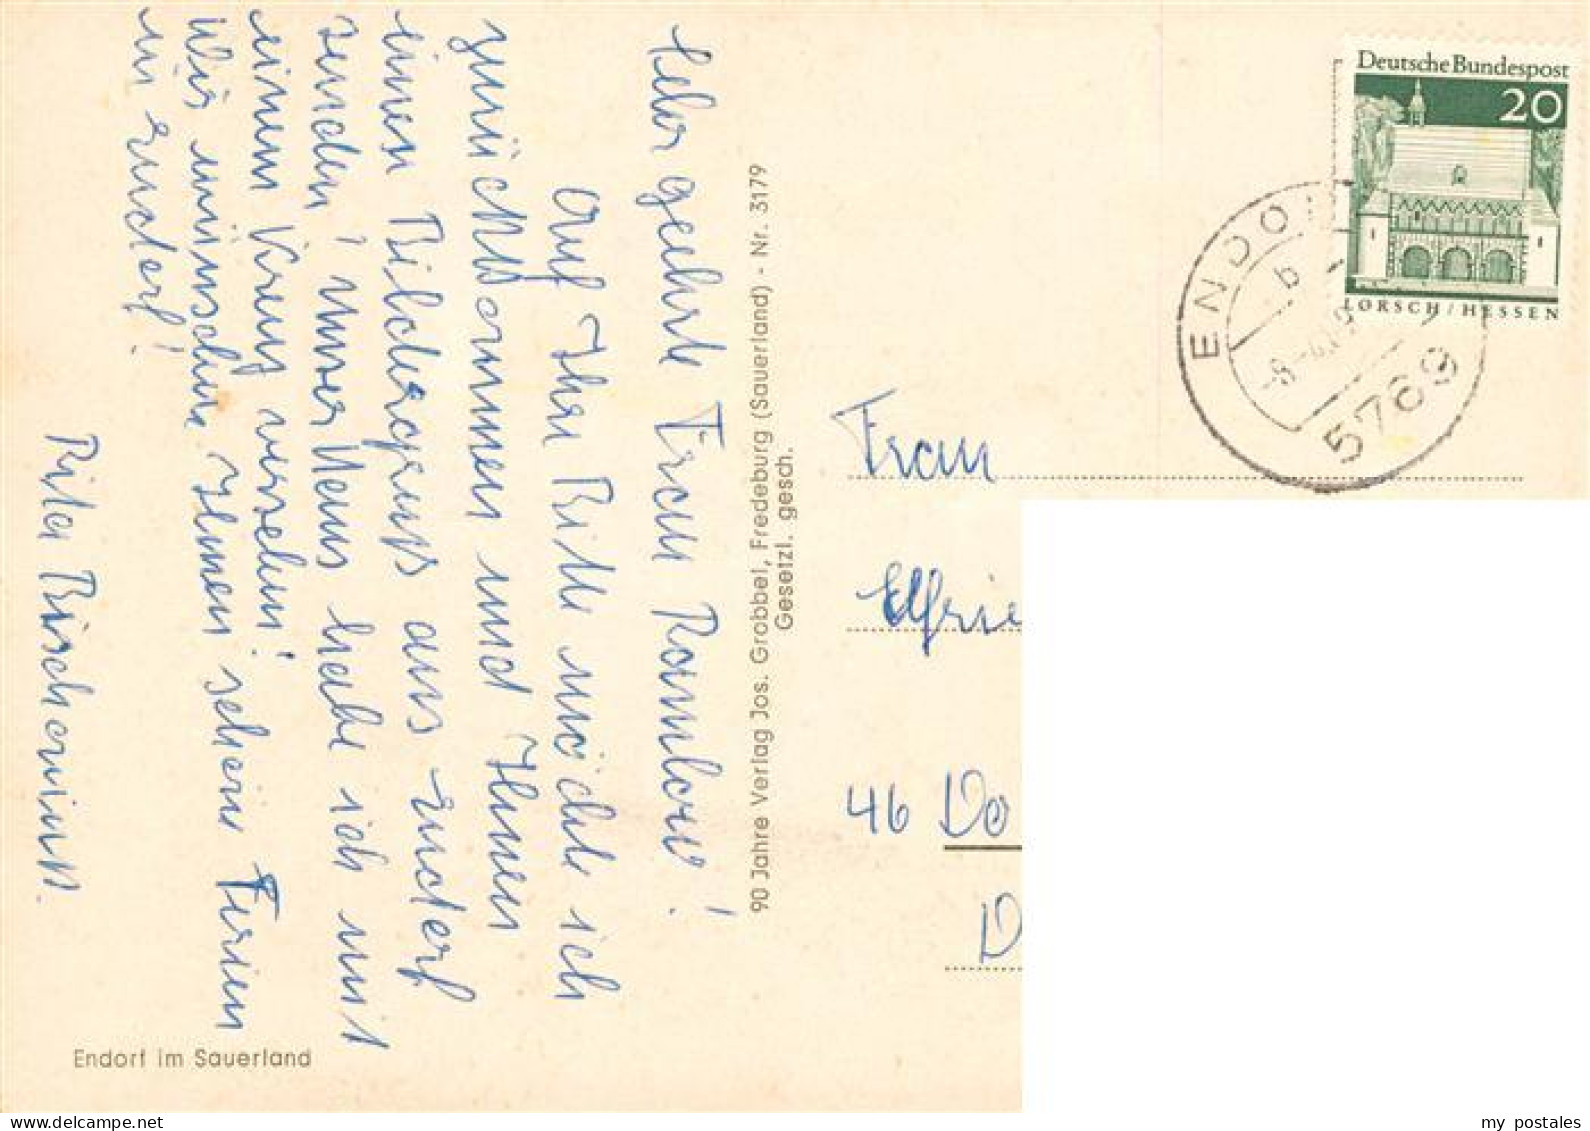 Sehr geehrte Frau Ramlow!
Auf Ihre Bitte möchte ich
zurückkommen und Ihnen
einen Bildergruß aus Endorf
senden! Unser Haus habe ich mit
einem Kreuz versehen!
Wir wünschen Ihnen schöne Ferien
in Endorf!
Rita
90 Jahre Verlag Jos. Grobbel, Fredeburg (Sauerland) - Nr. 3179
Gesetzl. gesch.
Endorf im Sauerland
Deutsche Bundespost
20
LORSCH/HESSEN
ENDO
b
5769
Frau
Elfrie
46 Do
D
my postales